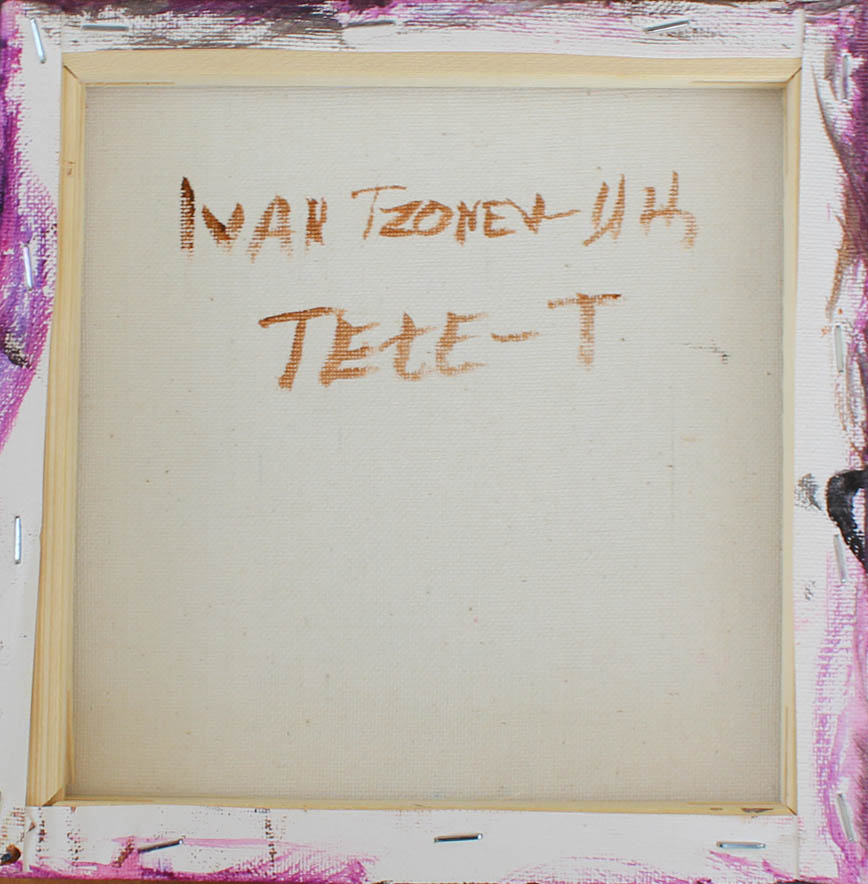 IVAN TZONEV-ЦЦ
TETE-T